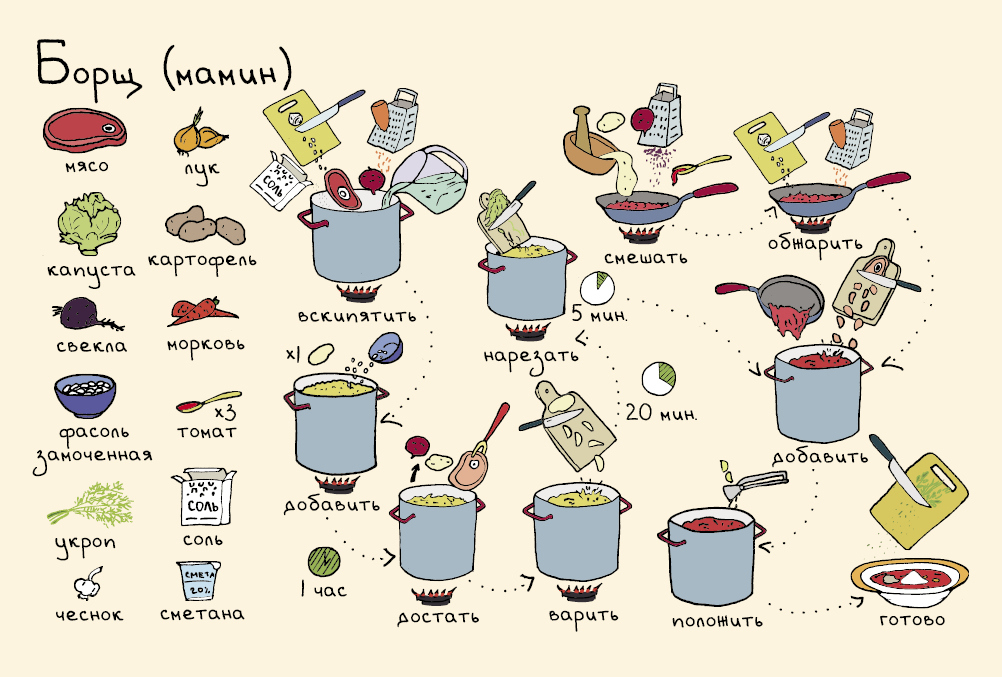 Борщ (мамин)
мясо
лук
капуста
картофель
свекла
морковь
фасоль
замоченная
x3
томат
укроп
соль
СОЛЬ
чеснок
СМЕТА
20%
сметана
СОЛЬ
вскипятить
x1
добавить
1 час
достать
варить
20 мин.
нарезать
5 мин.
смешать
обжарить
добавить
положить
готово